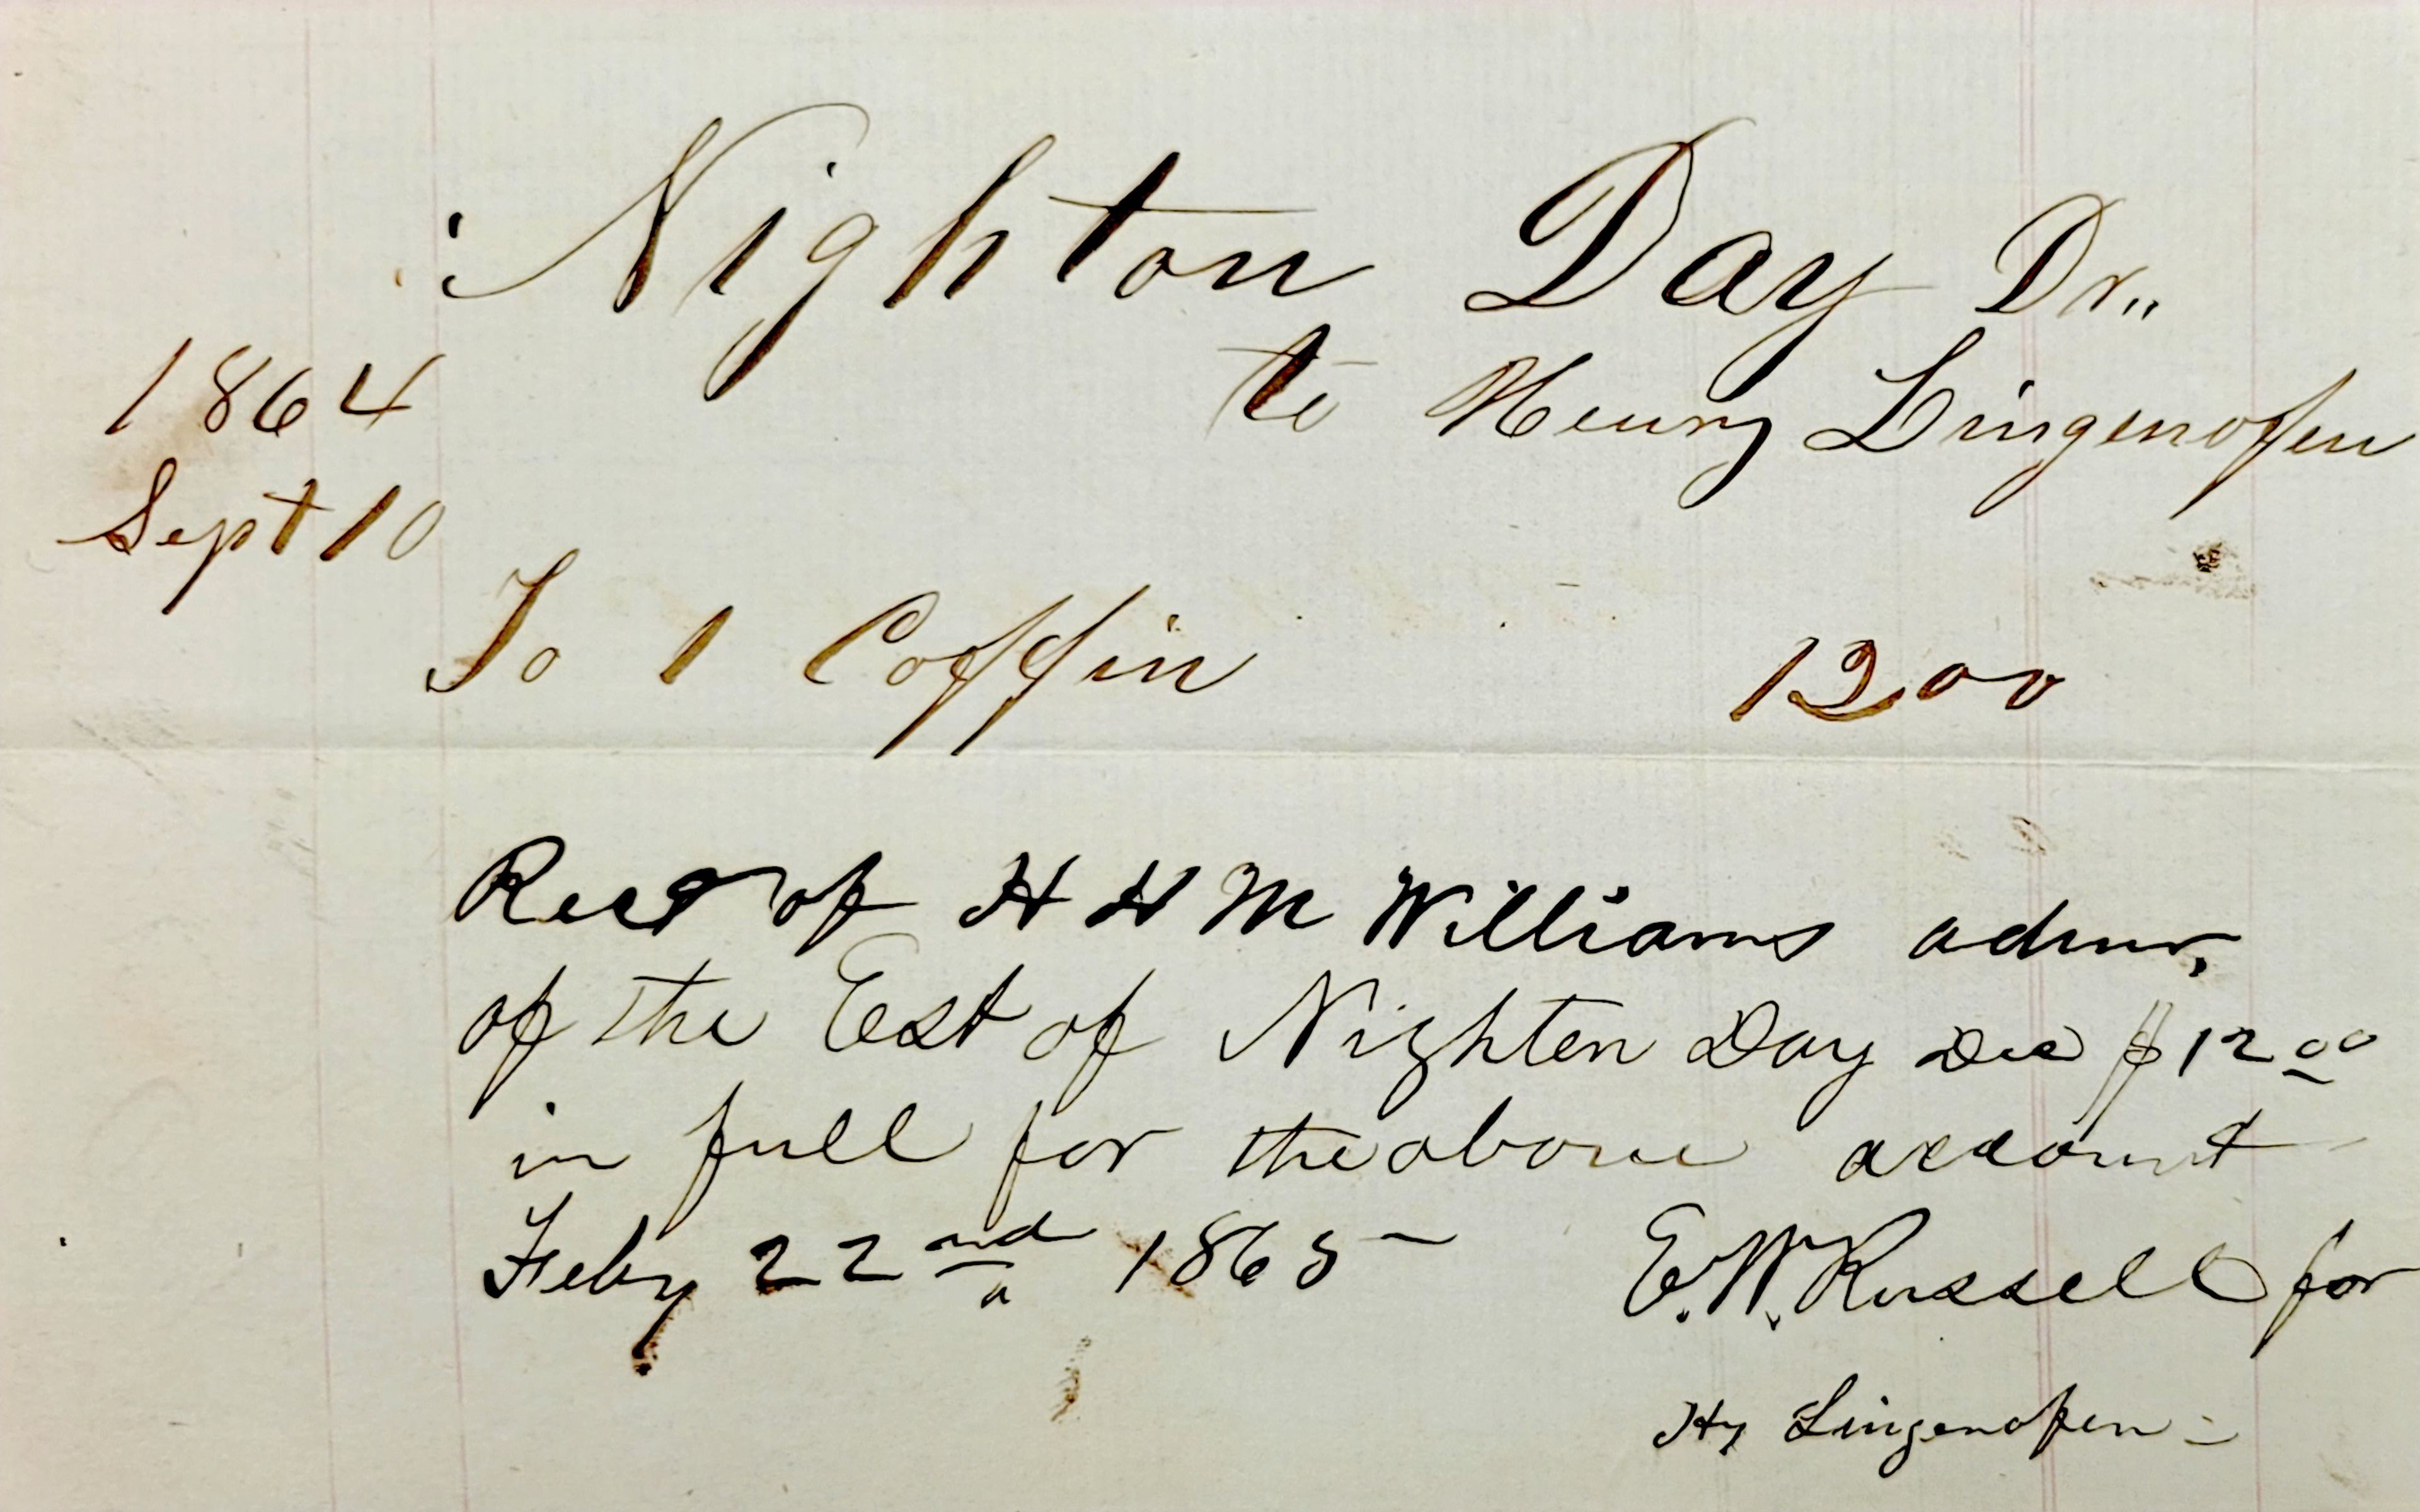 Nighton Day Dr,,
to Henry Lingenofen
1864
Sept 10
To 1 Coffin 12 00
Recd of H H M Williams admr,
of the Est of Nighten Day Dec $12 00
in full for the above account
Feby 22nd 1865 E. W. Russell for
Hy Lingenofen